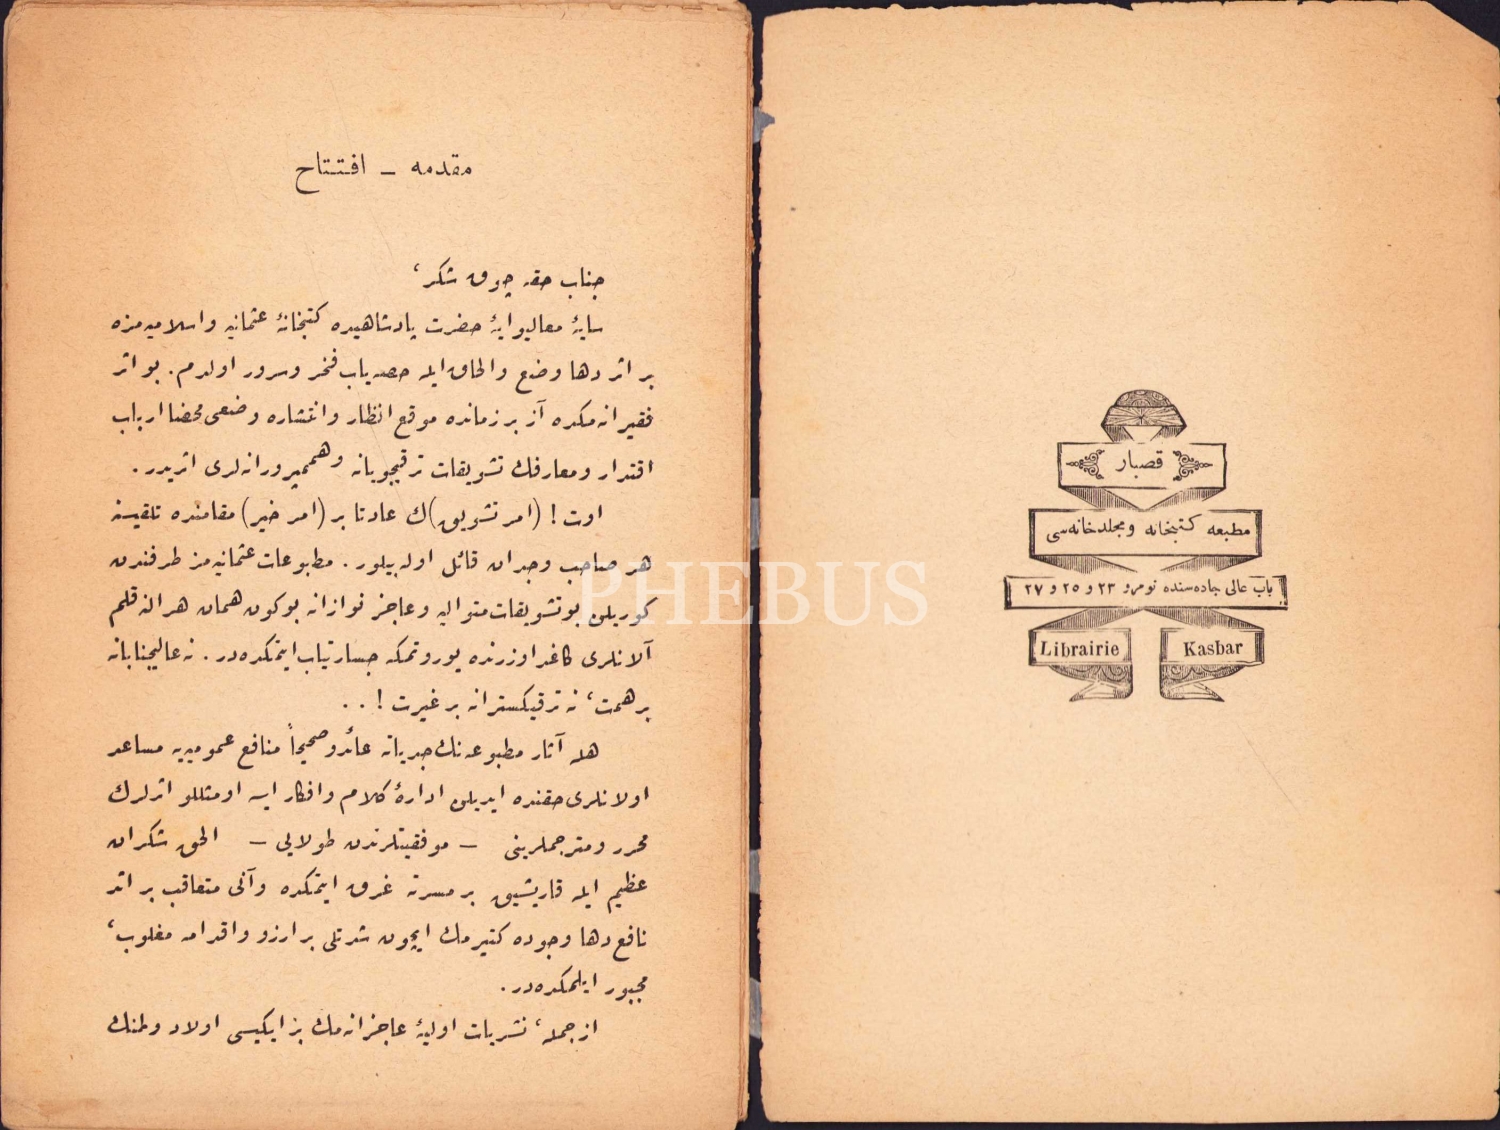 مقدمه ـ افتتاح
جناب حقه چوق شكر،
سایهٔ معالیوایهٔ حضرت پادشاهیده كتبخانهٔ عثمانیه و اسلامیه‌مزه
بر اثر دها وضع و الحاق ایله حصه‌یاب فخر و سرور اولدم. بو اثر
فقیرانه‌مكده آز بر زمانده موقع انظار و انتشاره وضعی محضا ارباب
اقتدار و معارفك تشویقات ترقیجویانه و هممپرورانه‌لری اثریدر.
اوت! (امر تشویق)ك عادتا بر (امر خیر) مقامنده تلقیسنه
هر صاحب وجدان قائل اوله‌بیلور. مطبوعات عثمانیه‌مز طرفندن
كوریلن بو تشویقات متوالیه و عاجز نوازانه بوكون همان هر النه قلم
آلانلری كاغد اوزرنده یوروتمكه جسارتیاب ایتمكده‌در. نه عالیجنابانه
بر همت، نه ترقیكسترانه بر غیرت!..
هله آثار مطبوعه‌نك جدیاته عائد و صحیحاً منافع عمومیه‌یه مساعد
اولانلری حقنده ایدیلن ادارهٔ كلام و افكار ایسه او مثللو اثرلرك
محرر و مترجملرینی ـ موفقیتلرندن طولایی ـ الحق شكران
عظیم ایله قاریشیق بر مسرته غرق ایتمكده و آنی متعاقب بر اثر
نافع دها وجوده كتیرمك ایچون شدتلی بر ارزو و اقدامه مغلوب،
مجبور ایلمكده‌در.
از جمله، نشریات اولیهٔ عاجزانه‌مك بر ایكیسی اولاد وطنك
قصبار
مطبعه كتبخانه و مجلدخانه‌سی
باب عالی جاده‌سنده نومرو ٢٣ و ٢٥ و ٢٧
Librairie Kasbar
PHEBUS